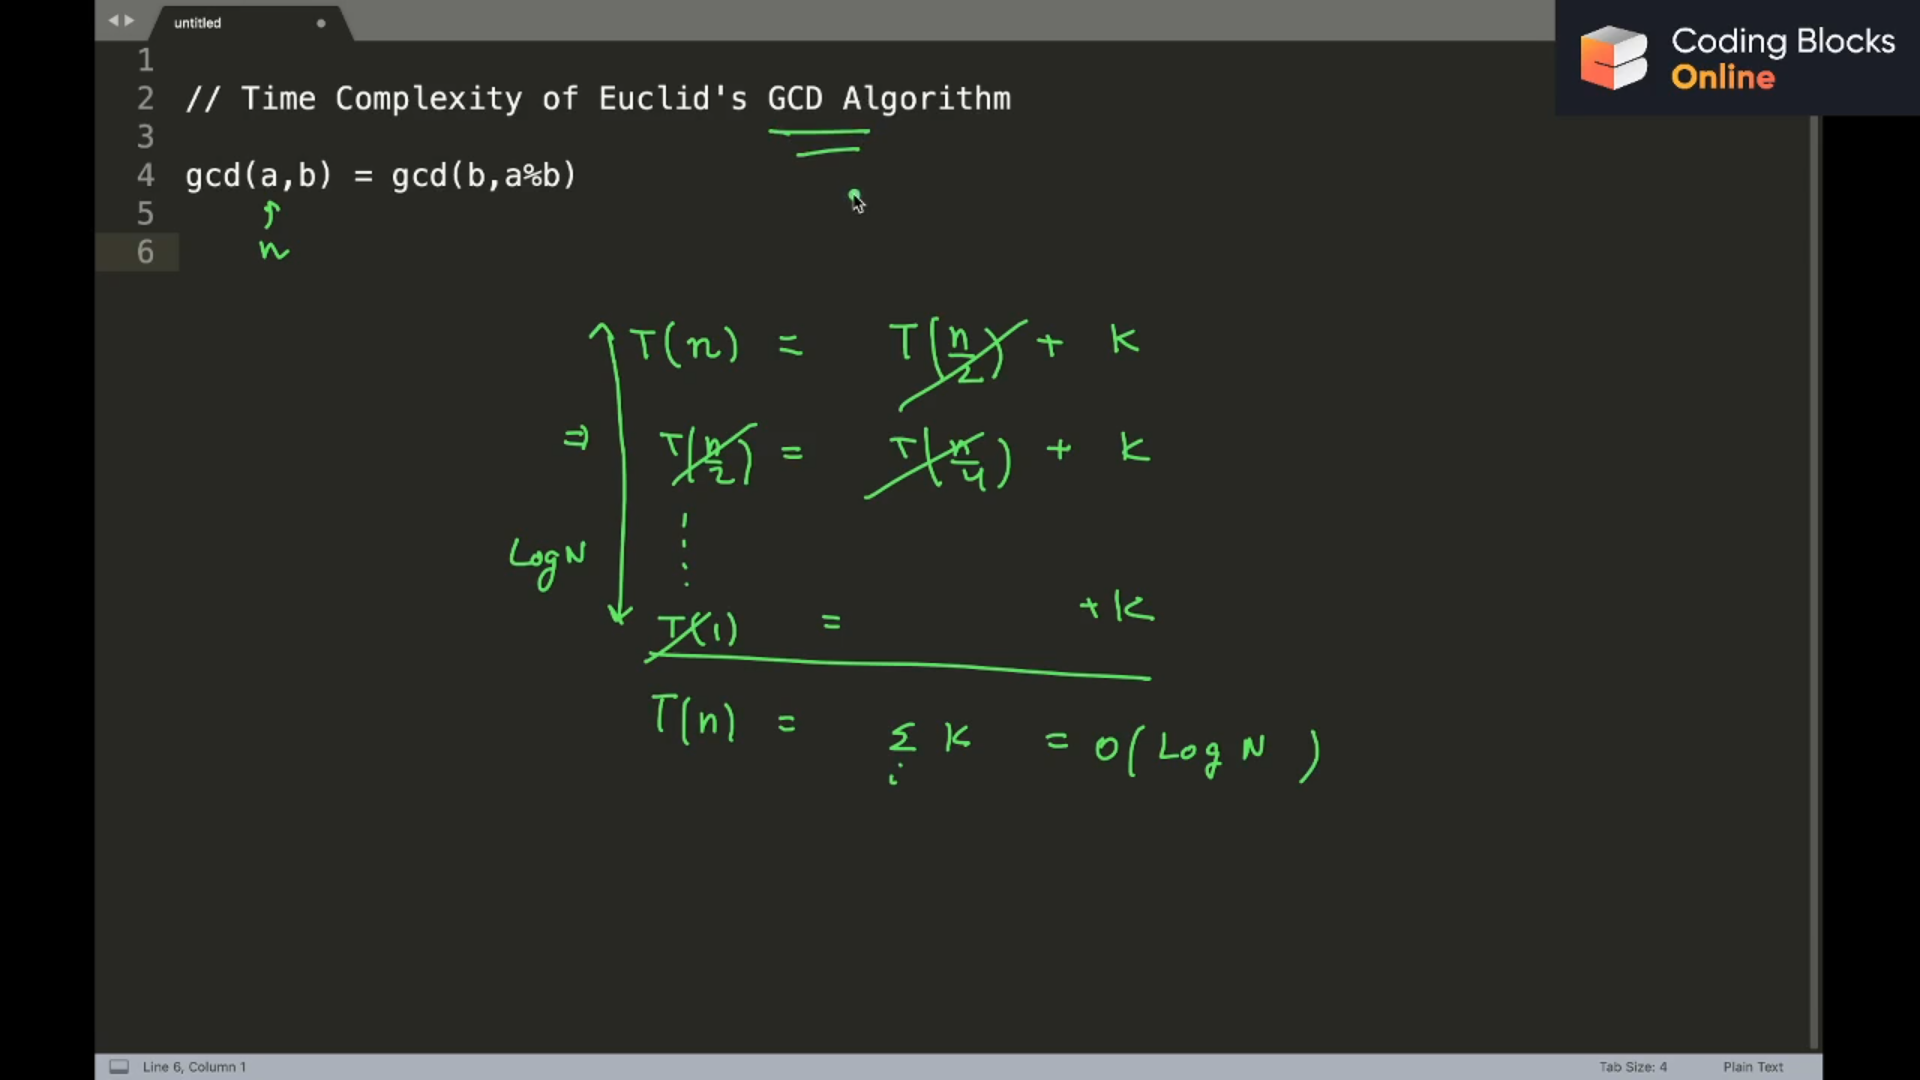 untitled
Coding Blocks
Online
1
2 // Time Complexity of Euclid's GCD Algorithm
3
4 gcd(a,b) = gcd(b,a%b)
5
6 n
T(n) = T(n/2) + K
⇒ T(n/2) = T(n/4) + K
Log N
T(1) = + K
T(n) = Σ K = O( Log N )
i
Line 6, Column 1
Tab Size: 4
Plain Text